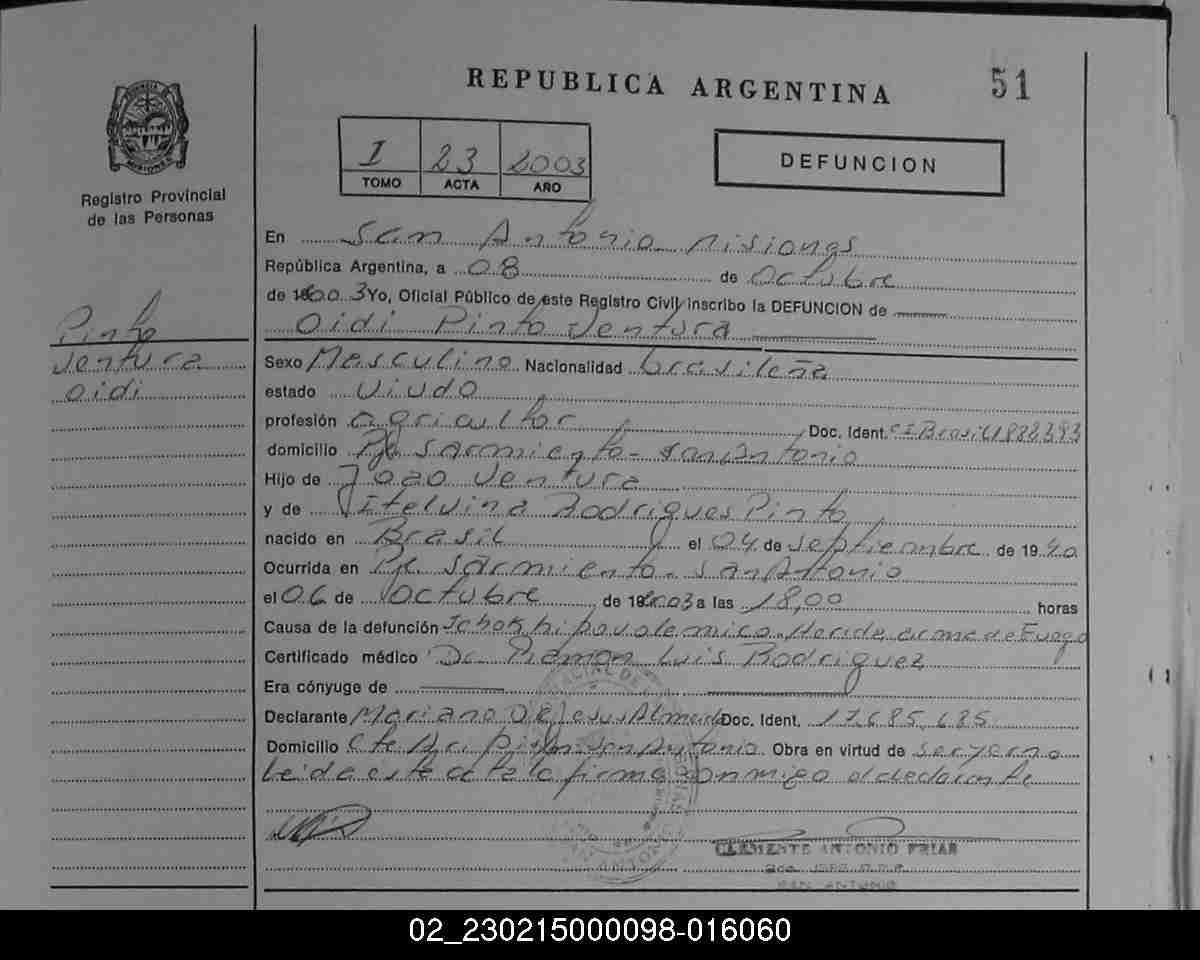 REPUBLICA ARGENTINA
51
I 23 2003
TOMO ACTA AÑO
DEFUNCION
Registro Provincial
de las Personas
Pinto
Ventura
Oidi
En San Antonio Misiones
República Argentina, a 08 de Octubre
de 2003 Yo, Oficial Público de este Registro Civil inscribo la DEFUNCION de
Oidi Pinto Ventura
Sexo Masculino Nacionalidad brasileña
estado Viudo
profesión agricultor Doc. Ident. CI Brasil
domicilio Pje Sarmiento - San Antonio
Hijo de Joao Ventura
y de Itelvina Rodrigues Pinto
nacido en Brasil el 04 de septiembre de 1940
Ocurrida en Pje Sarmiento - San Antonio
el 06 de Octubre de 2003 a las 18,00 horas
Causa de la defunción hipovolemico - Herida arma de Fuego
Certificado médico Dr. Ramon Luis Rodriguez
Era cónyuge de
Declarante Mariano De Jesus Almeida Doc. Ident. 17.685.685
Domicilio San Antonio Obra en virtud de ser yerno
Leida este acta la firma conmigo el declarante
CLEMENTE ANTONIO FRIAR
SAN ANTONIO
02_230215000098-016060